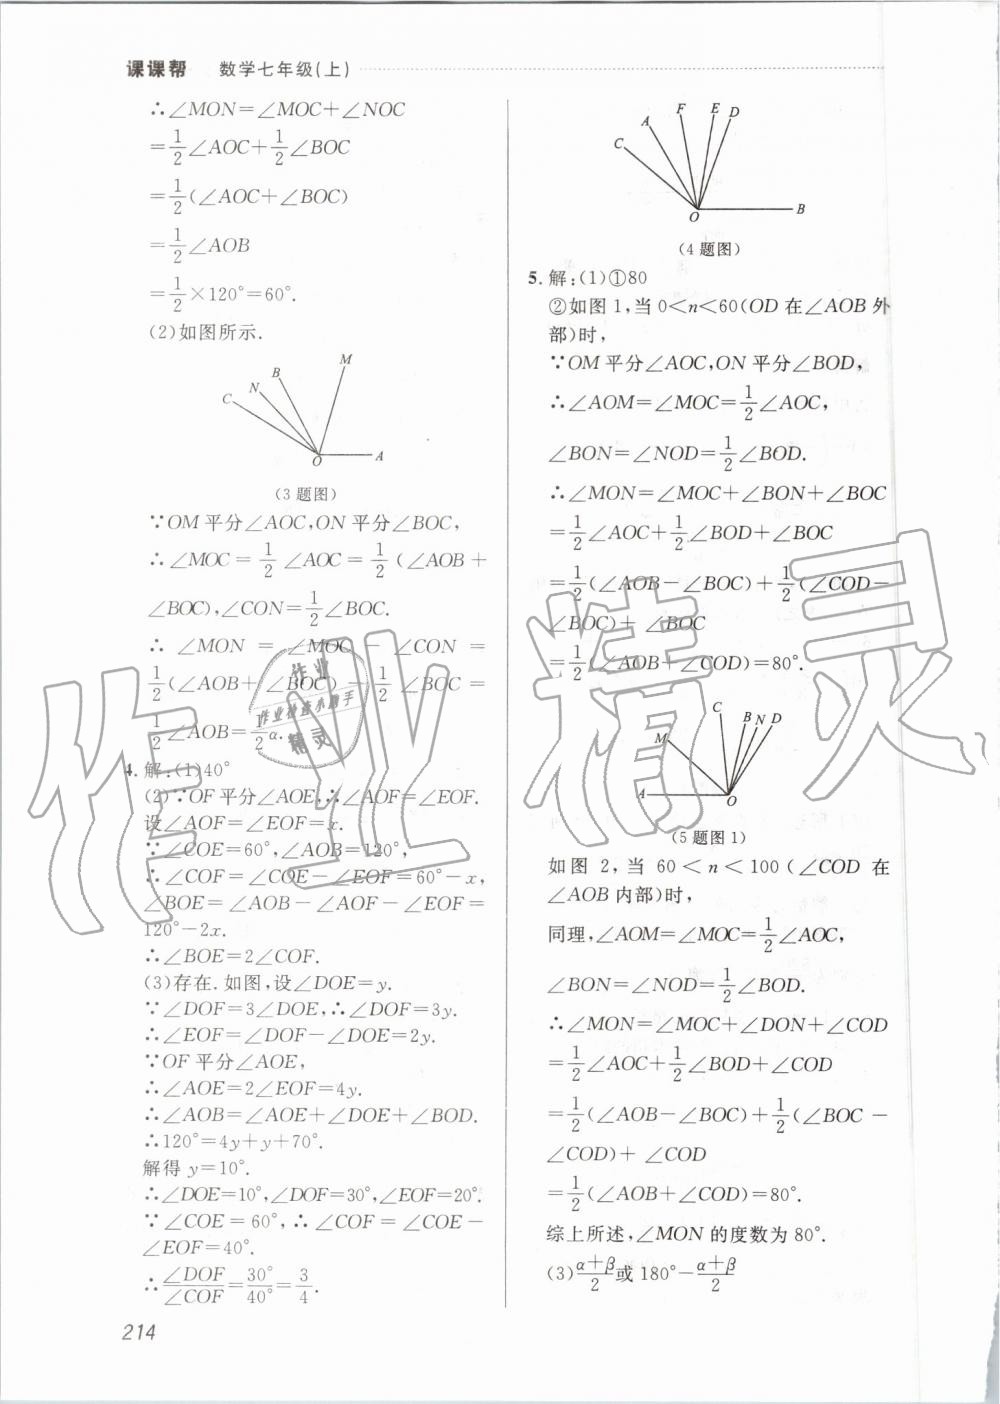 课课帮 数学七年级(上)
∴∠MON=∠MOC+∠NOC
=1/2∠AOC+1/2∠BOC
=1/2(∠AOC+∠BOC)
=1/2∠AOB
=1/2×120°=60°.
(2)如图所示.
M
B
N
C
O
A
(3题图)
∵OM平分∠AOC,ON平分∠BOC,
∴∠MOC=1/2∠AOC=1/2(∠AOB+
∠BOC),∠CON=1/2∠BOC.
∴∠MON=∠MOC-∠CON=
1/2(∠AOB+∠BOC)-1/2∠BOC=
1/2∠AOB=1/2α.
4.解:(1)40°
(2)∵OF平分∠AOE,∴∠AOF=∠EOF.
设∠AOF=∠EOF=x.
∵∠COE=60°,∠AOB=120°,
∴∠COF=∠COE-∠EOF=60°-x,
∠BOE=∠AOB-∠AOF-∠EOF=
120°-2x.
∴∠BOE=2∠COF.
(3)存在.如图,设∠DOE=y.
∵∠DOF=3∠DOE,∴∠DOF=3y.
∴∠EOF=∠DOF-∠DOE=2y.
∵OF平分∠AOE,
∴∠AOE=2∠EOF=4y.
∴∠AOB=∠AOE+∠DOE+∠BOD.
∴120°=4y+y+70°.
解得y=10°.
∴∠DOE=10°,∠DOF=30°,∠EOF=20°.
∵∠COE=60°,∴∠COF=∠COE-
∠EOF=40°.
∴∠DOF/∠COF=30°/40°=3/4.
214
F E D
A
C
O
B
(4题图)
5.解:(1)①80
②如图1,当0<n<60(OD在∠AOB外
部)时,
∵OM平分∠AOC,ON平分∠BOD,
∴∠AOM=∠MOC=1/2∠AOC,
∠BON=∠NOD=1/2∠BOD.
∴∠MON=∠MOC+∠BON+∠BOC
=1/2∠AOC+1/2∠BOD+∠BOC
=1/2(∠AOB-∠BOC)+1/2(∠COD-
∠BOC)+∠BOC
=1/2(∠AOB+∠COD)=80°.
C B N D
M
A
O
(5题图1)
如图2,当60<n<100(∠COD在
∠AOB内部)时,
同理,∠AOM=∠MOC=1/2∠AOC,
∠BON=∠NOD=1/2∠BOD.
∴∠MON=∠MOC+∠DON+∠COD
=1/2∠AOC+1/2∠BOD+∠COD
=1/2(∠AOB-∠BOC)+1/2(∠BOC-
∠COD)+∠COD
=1/2(∠AOB+∠COD)=80°.
综上所述,∠MON的度数为80°.
(3)α+β/2或180°-α+β/2
作业精灵
作业
作业检查小助手
精灵